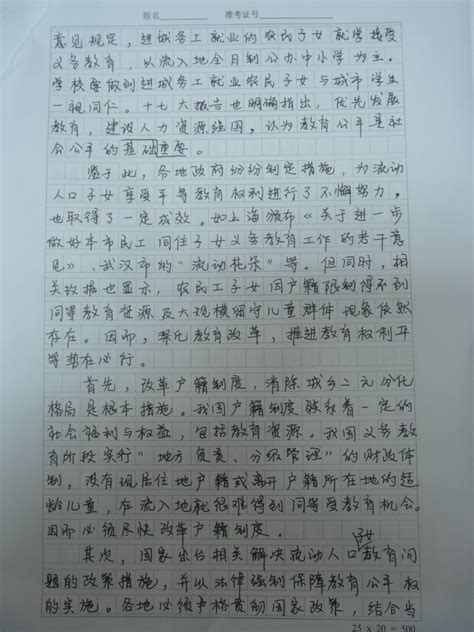 姓名 准考证号
意见规定，进城务工就业的农民子女就学接受
义务教育，以流入地全日制公办中小学为主。
学校要做到进城务工就业农民子女与城市学生
一视同仁。十七大报告也明确指出，优先发展
教育，建设人力资源强国，认为教育公平是社
会公平的基础重要。
鉴于此，各地政府纷纷制定措施，为流动
人口子女享受平等教育权利进行了不懈努力，
也取得了一定成效。如上海颁布《关于进一步
做好本市民工同住子女义务教育工作的若干意
见》、武汉市的“流动花朵”等。但同时，相
关数据也显示，农民工子女因户籍限制得不到
同等教育资源及大规模留守儿童群体现象依然
存在。因而，深化教育改革，推进教育权利平
等势在必行。
首先，改革户籍制度，消除城乡二元分化
格局是根本措施。我国户籍制度承载着一定的
社会福利与权益，包括教育资源。我国义务教
育阶段实行“地方负责、分级管理”的财政体
制，没有现居住地户籍或离开户籍所在地的适
龄儿童，在流入地就很难得到同等受教育机会。
因而必须尽快改革户籍制度。
其次，国家出台相关解决流动人口子女教育问
题的政策措施，并以法律强制保障教育公平权
的实施。各地必须严格贯彻国家政策，结合当
25 x 20 = 500